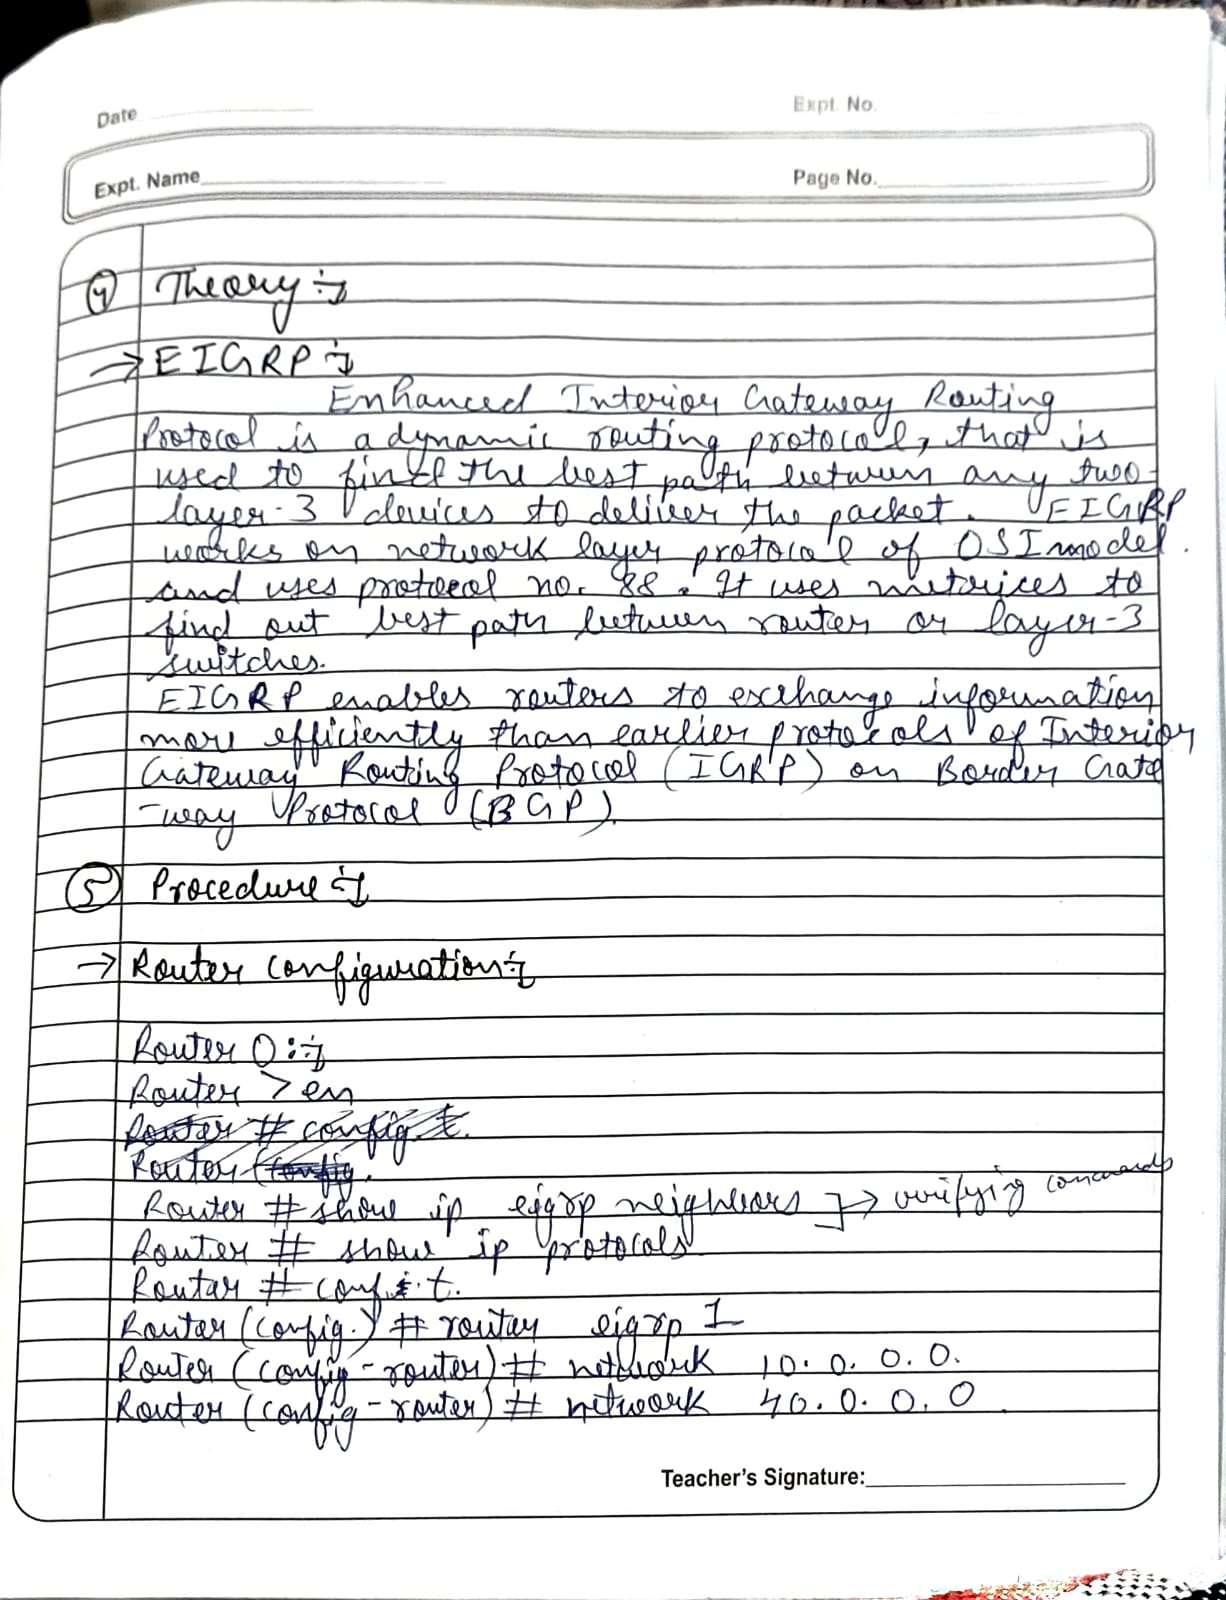 Date
Expt. No.
Expt. Name
Page No.
④ Theory :-
→ EIGRP :-
Enhanced Interior Gateway Routing
Protocol is a dynamic routing protocol, that is
used to find the best path between any two
layer-3 devices to deliver the packet. EIGRP
works on network layer protocol of OSI model.
and uses protocol no. 88. It uses metrices to
find out best path between router or layer-3
switches.
EIGRP enables routers to exchange information
more efficiently than earlier protocols of Interior
Gateway Routing Protocol (IGRP) on Border Gate
-way Protocol (BGP).
⑤ Procedure :-
→ Router configuration :-
Router 0 :-
Router > en
Router # config t.
Router (config.
Router # show ip eigrp neighbors ]→ verifying commands
Router # show ip protocols
Router # conf t.
Router (config.) # router eigrp 1
Router (config-router) # network 10.0.0.0.
Router (config-router) # network 40.0.0.0
Teacher's Signature: